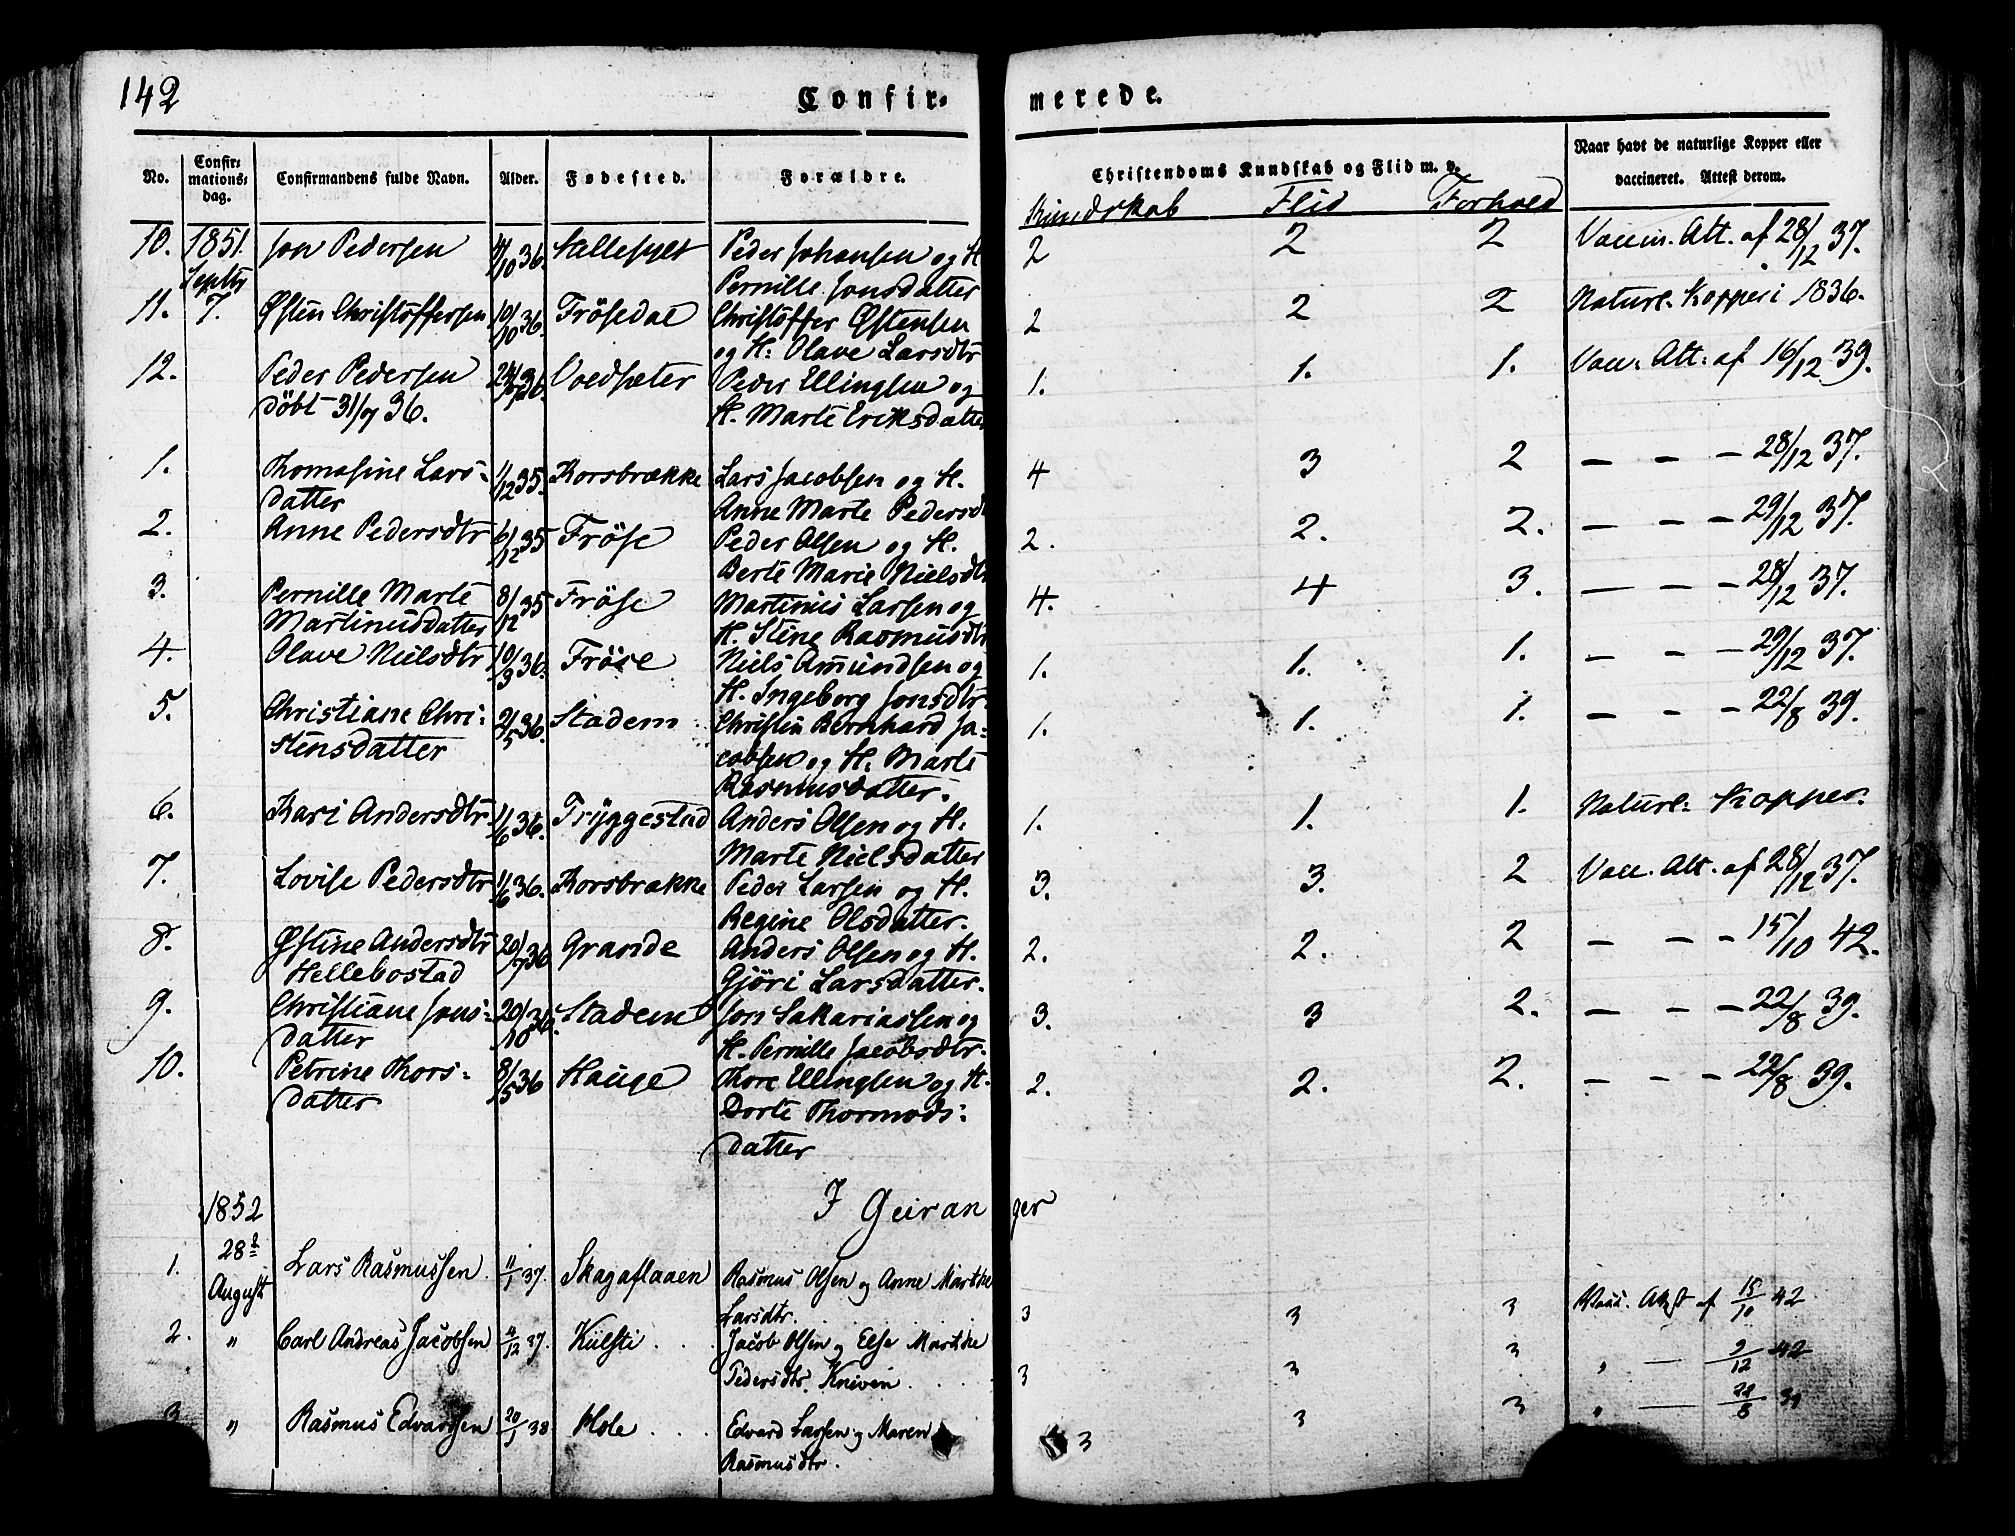 142
Confir-
merede.
No. Confirmations-dag. Confirmandens fulde Navn. Alder. Fødested. Forældre. Christendoms Kundskab og Flid m. v. Naar havt de naturlige Kopper eller vaccineret. Attest derom.
Kundskab Flid Forhold
10. 1851. Jon Pedersen 4/10 36. Hellesylt Peder Johansen og H. 2 2 2 Vaccin. Att. af 28/12 37.
Septbr Pernille Jonsdatter
11. 7. Østen Christoffersen 10/10 36. Frösedal Christoffer Østensen 2 2 2 Naturl. Kopper i 1836.
og H: Olave Larsdtr
12. Peder Pedersen 24/7 36 Voedsæter Peder Ellingsen og 1. 1. 1. Vacc: Att: af 16/12 39.
döbt 31/7 36. H. Marte Eriksdatter
1. Thomasine Lars- 1/12 35. Korsbrække Lars Jacobsen og H. 4 3 2 — — — 28/12 37.
datter Anne Marte Pedersd
2. Anne Pedersdtr 6/12 35 Fröse Peder Olsen og H. 2. 2. 2. — — — 29/12 37.
Berte Marie Nielsdtr
3. Pernille Marte 8/12 35 Fröse Martinus Larsen og 4. 4 3. — — — 28/12 37.
Martinusdatter H. Stine Rasmusdtr
4. Olave Nielsdtr 10/3 36. Fröse Niels Amundsen og 1. 1. 1. — — — 29/12 37.
H. Ingeborg Jonsdtr.
5. Christiane Chri- 2/5 36. Stadem Christen Bernhard Ja- 1. 1. 1. — — — 22/8 39.
stensdatter cobsen og H. Marte
Rasmusdatter.
6. Kari Andersdtr 1/6 36. Tryggestad Anders Olsen og H. 1. 1. 1. Naturl: Kopper.
Marte Nielsdatter
7. Lovise Pedersdtr 1/6 36. Korsbrække Peder Larsen og H. 3. 3. 2 Vacc. Att. af 28/12 37.
Regine Olsdatter.
8. Østine Andersdtr 20/7 36 Grande Anders Olsen og H. 2. 2. 2 — — — 15/10 42.
Hellebostad Gjöri Larsdatter.
9. Christiane Jons- 20/10 36. Stadem Jon Sakariassen og 3. 3 2. — — — 22/8 39.
datter H. Pernille Jacobsdtr.
10. Petrine Thors- 8/5 36 Hauge Thore Ellingsen og H. 2. 2. 2. — — — 22/8 39.
datter Dorte Thormods-
datter
1852 I Geiranger
28de
1. August Lars Rasmussen 11/1 37. Skagaflaaen Rasmus Olsen og Anne Marthe
Larsdtr. 3 3 3 Vacc. Atst af 15/10 42
2. " Carl Andreas Jacobsen 4/12 37. Külsti . . . Jacob Olsen og Else Marthe
Pedersdtr. Kniven . . . 3 3 3 " — 9/12 42
3 " Rasmus Edvardsen 20/1 38 Hole . . . Edvard Larsen og Maren 3 3 3 " — 22/8 39
Rasmusdtr.